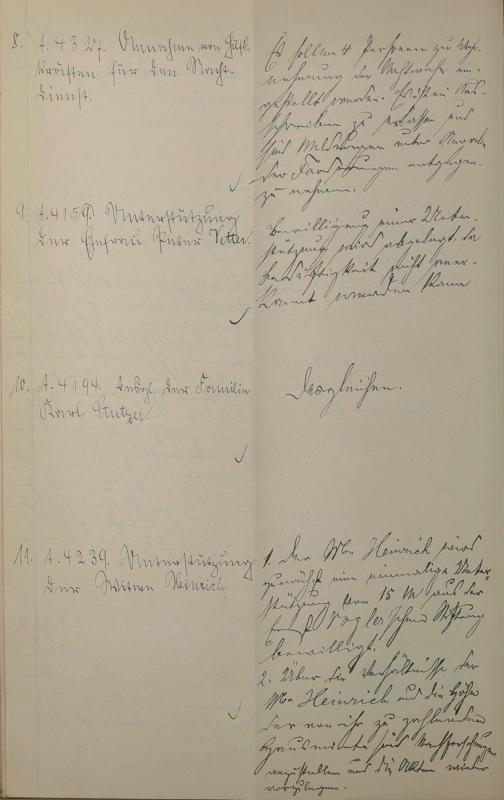 8. A. 4327. Annahme von Hilfs-
kräften für den Nacht-
dienst.
Es sollen 4 Personen zur Wahr-
nehmung der Nachtwache ein-
gestellt werden. Aus-
schreiben zu erlassen und
sind Meldungen unter Angabe
der Forderungen entgegen-
zu nehmen.
9. A. 4159. Unterstützung
der Ehefrau Peter Vetter.
Bewilligung einer Unter-
stützung wird abgelehnt, da
Bedürftigkeit nicht aner-
kannt werden kann.
10. A. 4194. desgl. der Familie
Karl
Desgleichen.
11. A. 4239. Unterstützung
der Witwe Heinrich.
1. Der Wwe Heinrich wird
zunächst eine einmalige Unter-
stützung von 15 M aus der
Vogler'schen Stiftung
bewilligt.
2. Über die Verhältnisse der
Wwe Heinrich und die Höhe
der von ihr zu zahlenden
Hausmiete sind Nachforschungen
anzustellen und die Akten wieder
vorzulegen.